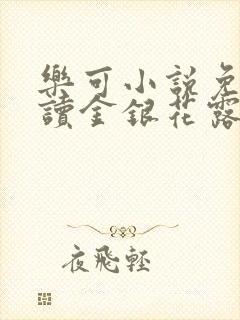 樂可小說免
讀金銀花露
夜飛輕